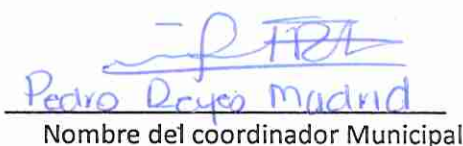 Pedro Reyes Madrid
Nombre del coordinador Municipal